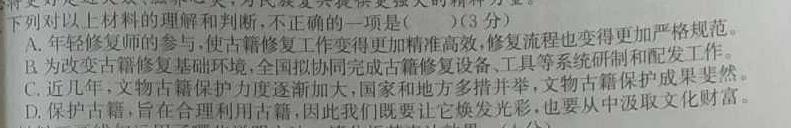 下列对以上材料的理解和判断,不正确的一项是(　　)(3分)
A. 年轻修复师的参与,使古籍修复工作变得更加精准高效,修复流程也变得更加严格规范。
B. 为改变古籍修复基础环境,全国拟协同完成古籍修复设备、工具等系统研制和配发工作。
C. 近几年,文物古籍保护力度逐渐加大,国家和地方多措并举,文物古籍保护成果斐然。
D. 保护古籍,旨在合理利用古籍,因此我们既要让它焕发光彩,也要从中汲取文化财富。